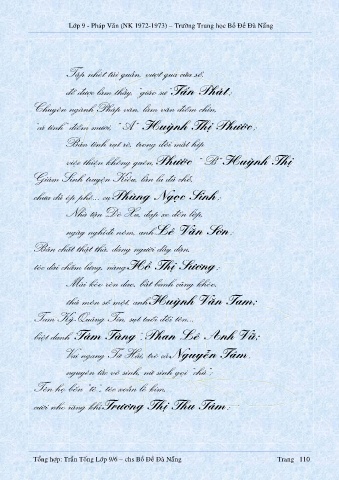 Lớp 9 - Pháp Văn (NK 1972-1973) – Trường Trung học Bồ Đề Đà Nẵng
Tập nhót túi quần, vượt qua cửa sổ,
để được làm thầy, "giáo sư" Tấn Phát;
Chuyên ngành Pháp văn, làm văn điểm chín,
"cá tính" điểm mười, "A" Huỳnh Thị Phước;
Bản tính vui vẻ, trong đôi mắt híp
việc thiện không quên, Phước "B" Huỳnh Thị
Giám Sinh truyện Kiều, lần lá dò chổ,
chưa đã óp phé... cụ Phùng Ngọc Sinh;
Nhà tận Đò Xu, đạp xe đến lớp,
ngày nghỉ đi nôm, anh Lê Văn Sơn;
Bản chất thật thà, dáng người dây dặn,
tóc dài chấm lưng, nàng Hồ Thị Sương;
Mai kéo xén dao, bắt banh cũng khéo,
thủ môn số một, anh Huỳnh Văn Tam;
Tam Kỳ Quảng Tín, sụt tuổi đổi tên...
biệt danh "Tám Tàng", Phan Lê Anh Vũ;
Vai ngang Từ Hải, trò cũ Nguyễn Tâm
nguyên tắc vệ sinh, nữ sinh gọi "chú";
Tên họ bốn "tê", tóc xoăn lô kim,
cười nho răng khểnh Trương Thị Thu Tâm;
Tổng hợp: Trần Tống Lớp 9/6 – chs Bồ Đề Đà Nẵng
Trang 110